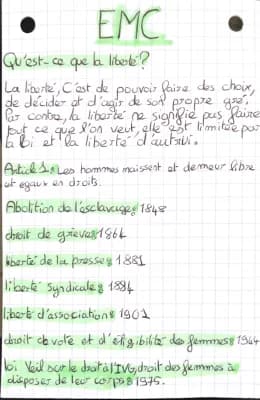 EMC
Qu'est-ce que la liberté?
La liberté, C'est de pouvoir faire des choix,
de décider et d'agir de son propre gré.
Par contre, la liberté ne signifie pas faire
tout ce que l'on veut, elle est limitée par
la loi et la liberté d'autrui.
Article 1: Les hommes naissent et demeur libre
et egaux en droits.
Abolition de l'esclavage: 1848
droit de grève: 1864
liberté de la presse: 1881
liberté Syndicale: 1884
liberté d'association: 1901
droit de vote et d'éligibilité des femmes: 1944
loi Veil sur le droit à l'IVG, droit des femmes à
disposer de leur corps: 1975.